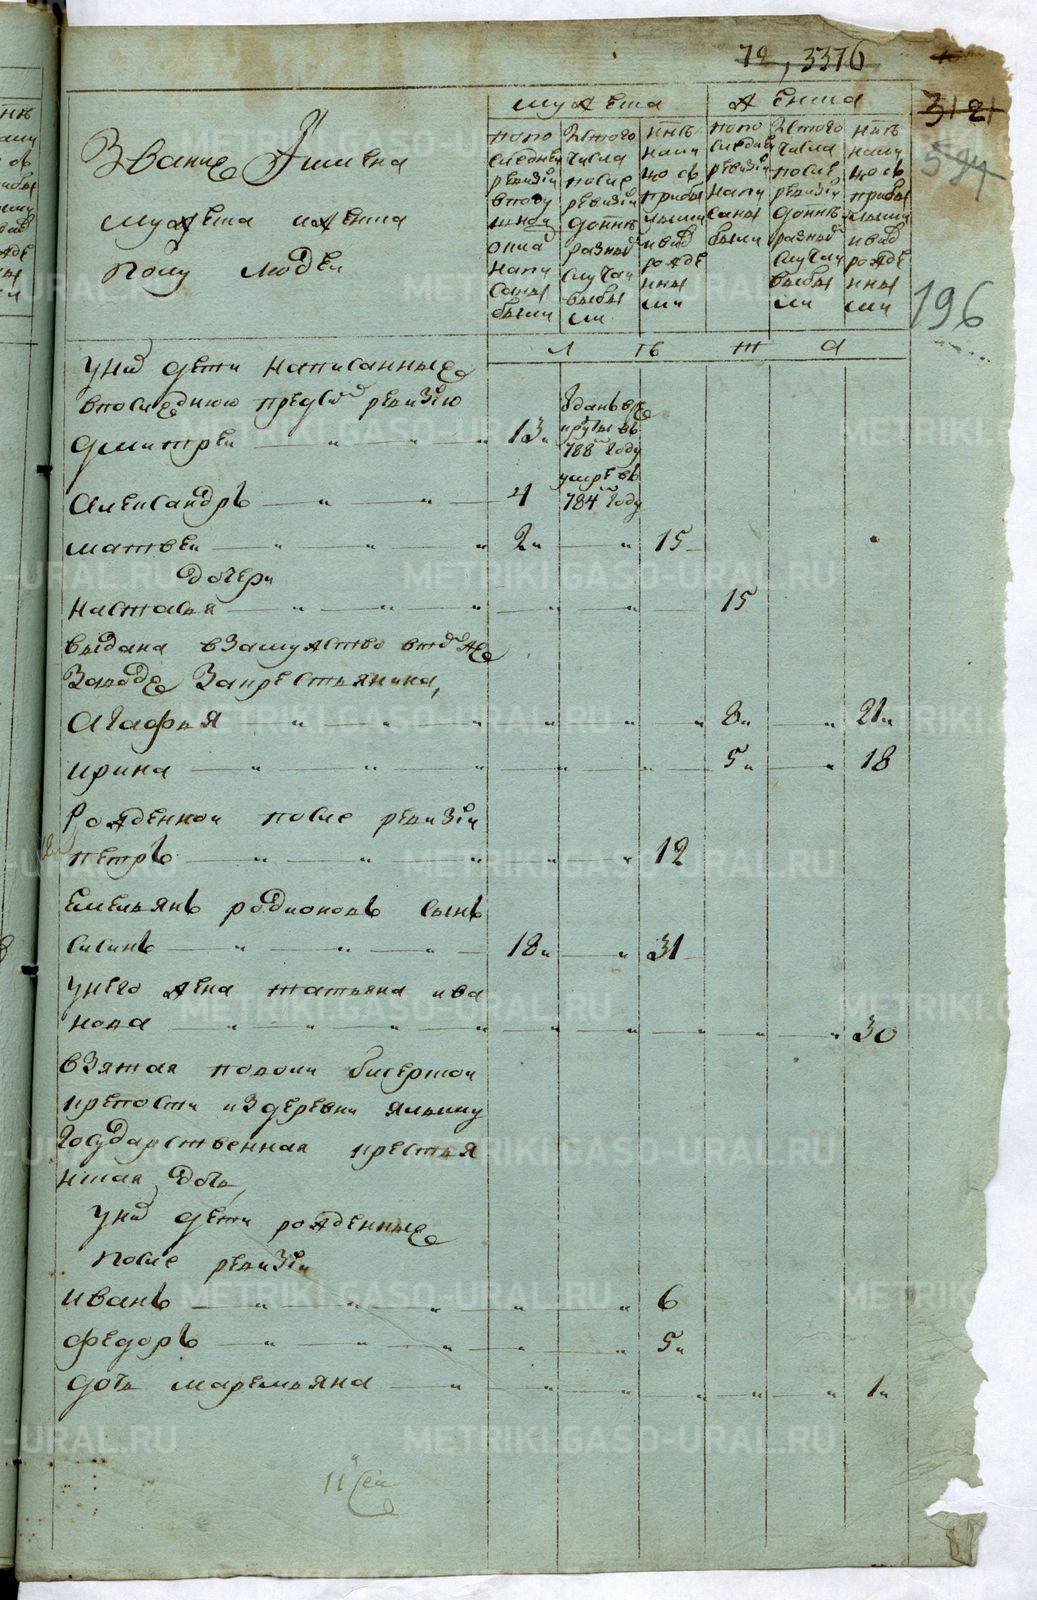 72, 3376
3121
584
196
Званiе Iимена
мужеска иженска
полу людеи
мужеска
женска
попо следнеи ревизiи вподу шной окла напи саны были
Изтого числа после ревизiи доннѣ разны случаи выбы ли
ннѣ напи цо съ прибы лыми ивнов рожде нны ми
попо следнеи ревизiи напи саны были
Изтого числа после ревизiи доннѣ разны случаи выбы ли
ннѣ напи цо съ прибы лыми ивнов рожде нны ми
л ѣ т а
уни дети написанные
впоследнюю пред ревизiю
дмитреи " " " 13 " зданъ вре круты въ 788 году
александръ " " 4 умре въ 784 году
матвеи " " " 2 " " 15
дочери
настасья " " " " " 15
выдана взамужство втоже
заводе закрестьянина,
агафья " " " " " " 8 " " 21 "
ирина " " " " " 5 " " 18
рожденнои после ревизiи
петръ " " " " " 12
емельянъ родионовъ сынъ
силинъ " " " 18 " " 31
унего жена татьяна ива
нова " " " " " " " " " 30
взятая повои бисертской
крепости издеревни
государственная крестья
нская дочь
уни дети рожденные
после ревизiи
иванъ " " " " " 6
федоръ " " " " " 5 "
дочь маремьяна " " " " " " 1 "